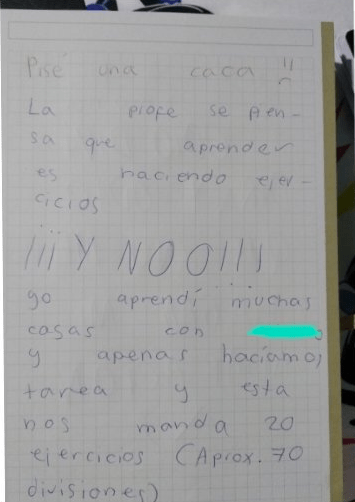 Pisé una caca :(
La profe se pien-
sa que aprender
es haciendo ejer-
cicios
¡¡¡Y NOO!!!
yo aprendí muchas
cosas con
y apenas hacíamos
tarea y esta
nos manda 20
ejercicios (Aprox. 70
divisiones)